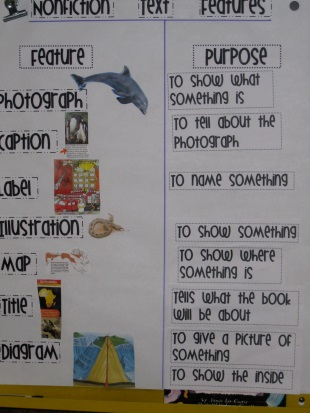 Nonfiction Text Features
Feature
Purpose
Photograph
To show what
something is
Caption
To tell about the
Photograph
Label
To name something
Illustration
To show something
Map
To show where
something is
Title
Tells what the book
will be about
Diagram
To give a picture of
something
To show the inside